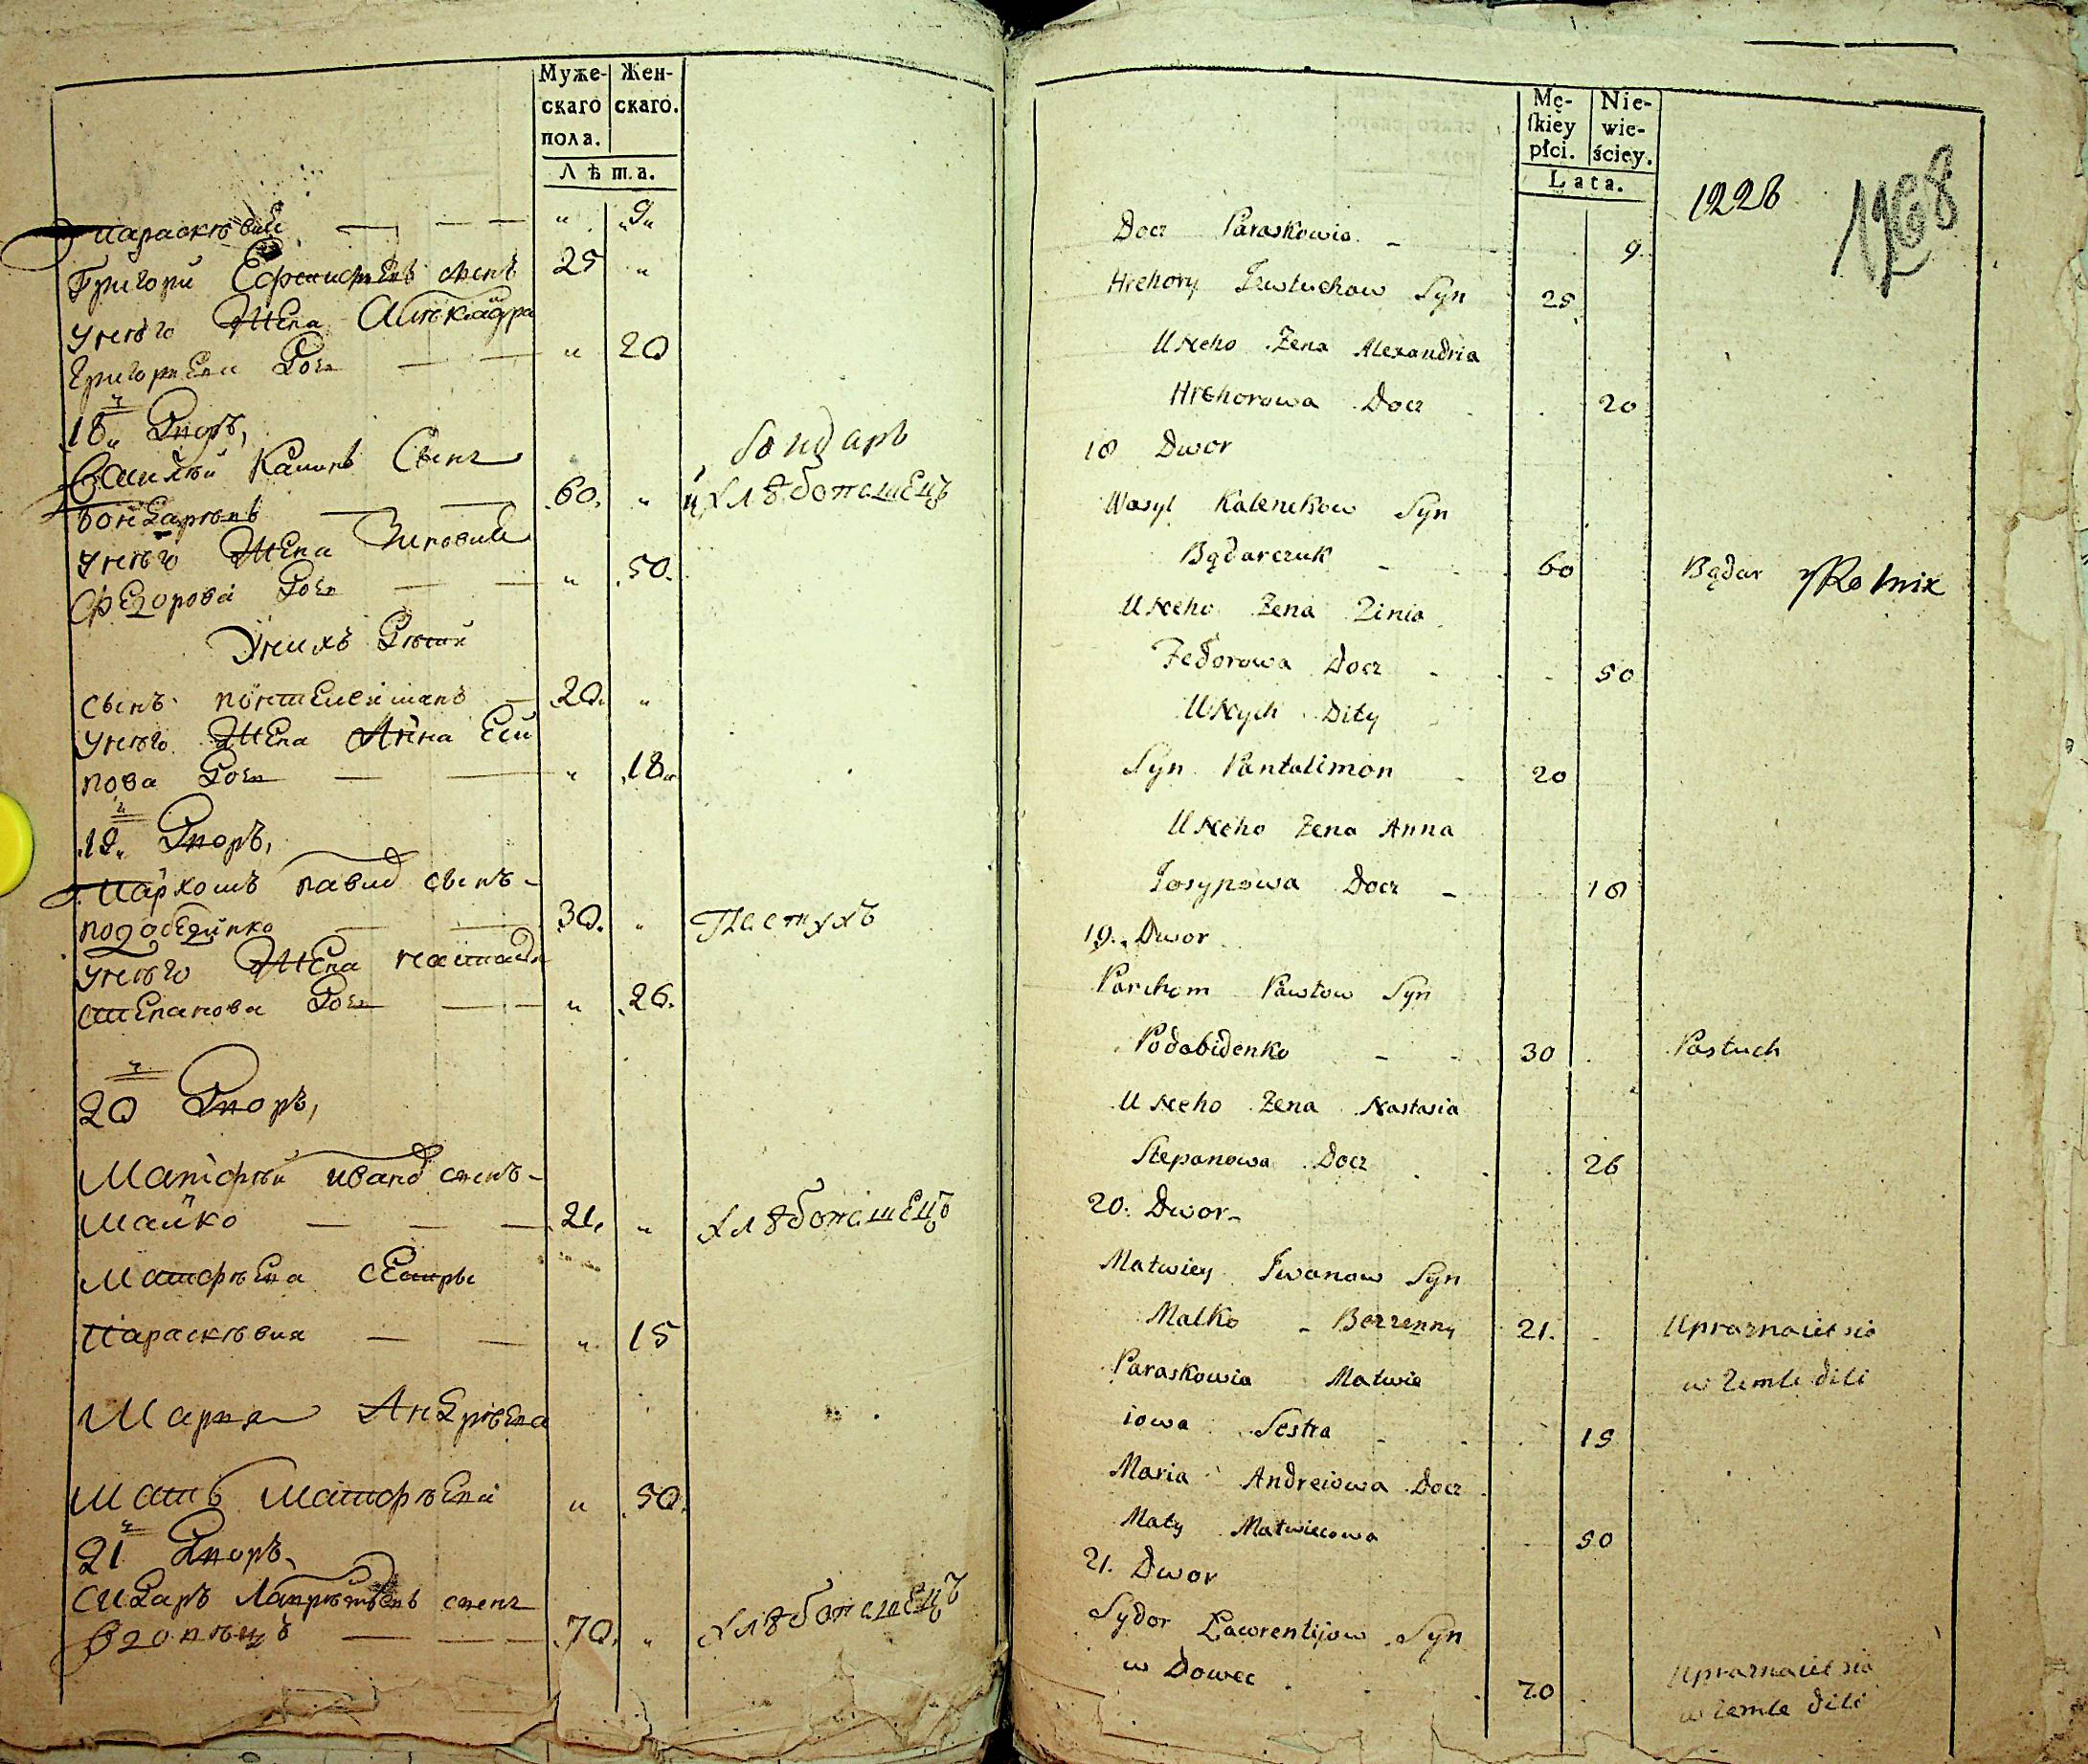 Муже-
скаго
пола.
Жен-
скаго.
Лѣта.
Параскѣвия — — — " 9
Григори сынъ 25 "
Унего Жена
Григориева Доч — — " 20
18й Дворъ,
Василій Калин Сынъ
бондарь
Бондарчѣкъ — — 60. " и хлѣбопашецъ
Унего Жена Зиновия
Федорова Доч — — " 50.
Унихъ Дѣти
сынъ пантелеймонъ — 20. "
Унего Жена Анна Еси
пова Доч — — " 18.
19й Дворъ,
Пархомъ павлов сынъ
подобединко — — 30. " Пастухъ
Унего Жена настасия
степанова Доч — — " 26.
20й Дворъ,
Матфѣй иванов сынъ
малко — — — 21. " хлѣбопашецъ
Матфѣева сестра
Параскѣвия — — " 15
Мария Андрѣева
Мать Матфѣева " 50.
21й Дворъ
Сидаръ Лаврѣнтьевъ сынъ
вдовецъ — — — 70. " хлѣбопашецъ
Mę-
ſkiey
płci.
Nie-
wie-
ściey.
Lata.
1228
1768
Docz Paraskowia - 9.
Hrehory Syn 25
U Neho Zena Alexandria
Hrehorowa Docz 20
18 Dwor
Wasyl Kalenikow Syn
Bądarczuk - 60 Bądar y Rolnik
U Neho Zena Zinia
Fedorowa Docz - 50
U Nych Dity
Syn Pantalimon - 20
U Neho Zena Anna
Josypowa Docz - 18
19. Dwor
Parchom Pawłow Syn
Podobidenko - 30 Pastuch
U Neho Zena Nastasia
Stepanowa Docz 26
20. Dwor -
Matwiey Iwanow Syn
Malko - 21. Upraznaiet sia
Paraskowia Matwie w Zemle dili
iowa Sestra - 15
Maria Andreiowa Docz
Maty Matwieiowa 50
21. Dwor
Sydor Ławrentijow Syn
w Dowec 70 Upraznaiet sia
w Zemle dili